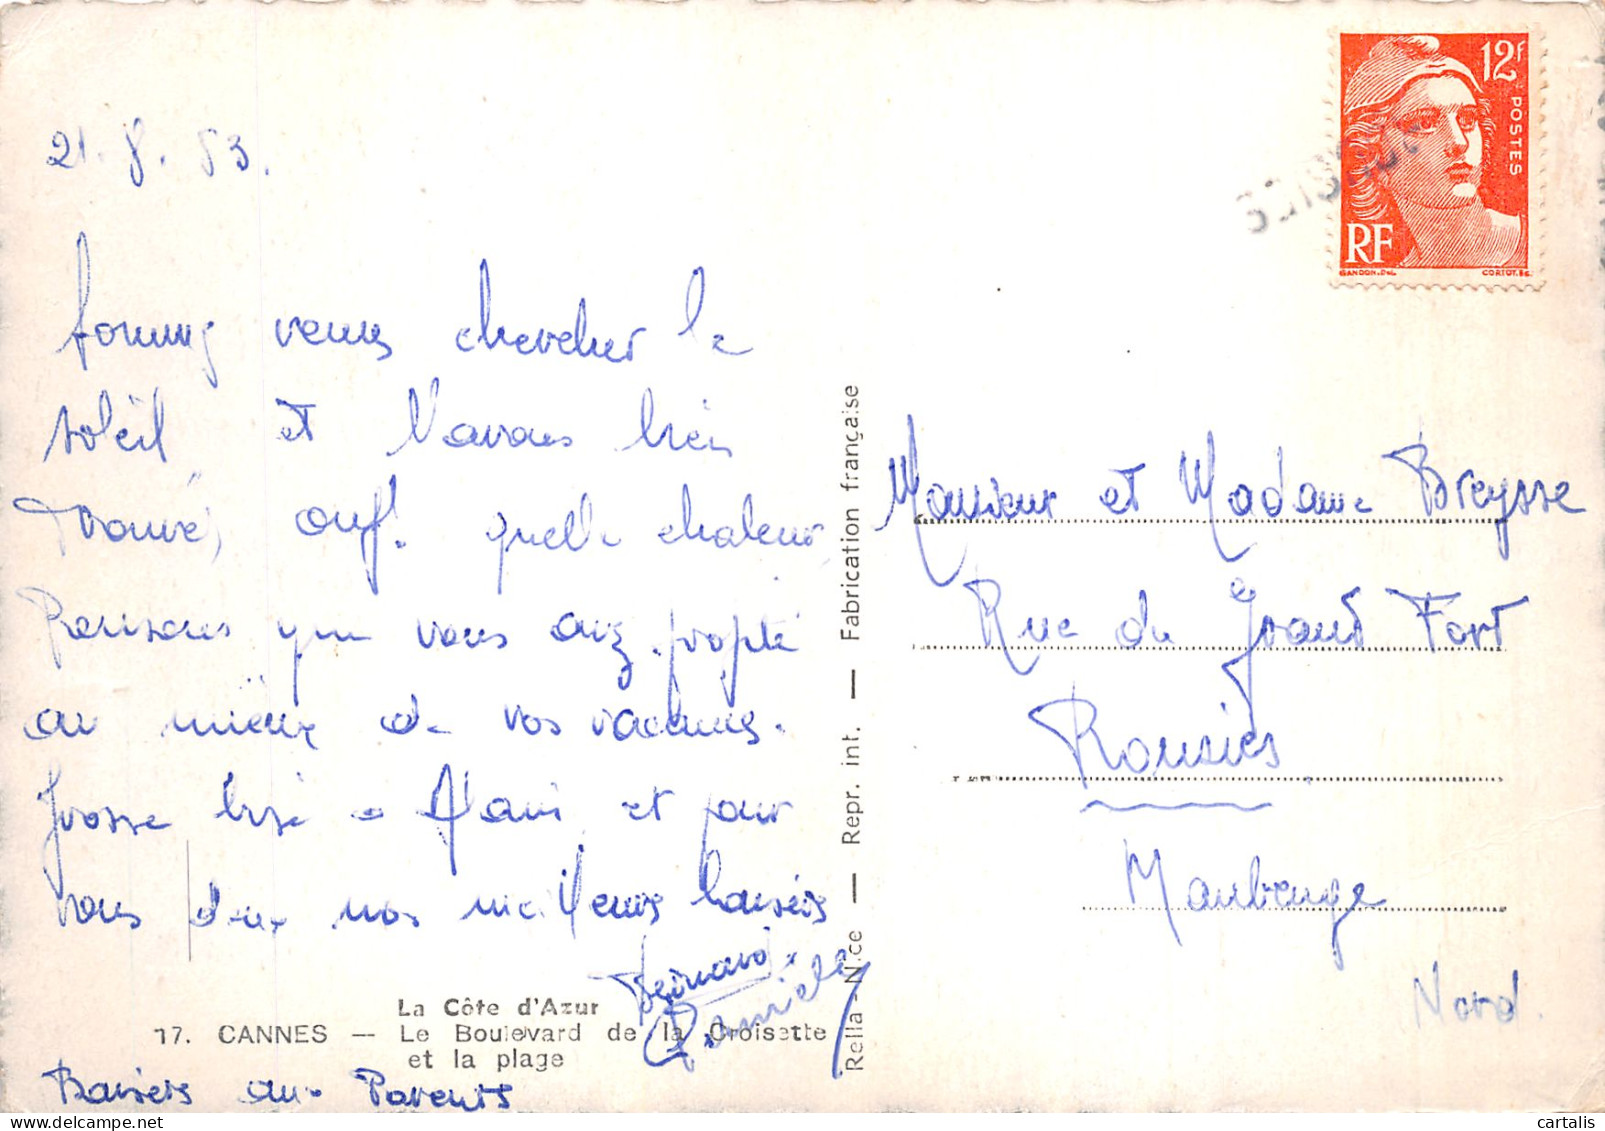 21.8.53.
sommes venus chercher le
soleil et l'avons bien
trouvé, ouf! quelle chaleur
Pensons que vous avez profité
au mieux de vos vacances.
Grosse bise à Alain et pour
vous deux nos meilleurs baisers
Bernard.
Danièle
La Côte d'Azur
17. CANNES — Le Boulevard de la Croisette
et la plage
Baisers aux Parents
Rella - Nice — Repr. int. — Fabrication française
12F
POSTES
RF
GANDON.DEL
CORTOT.SC.
Monsieur et Madame Breysse
Rue du Grand Fort
Rousies
Maubeuge
Nord.
cartalis